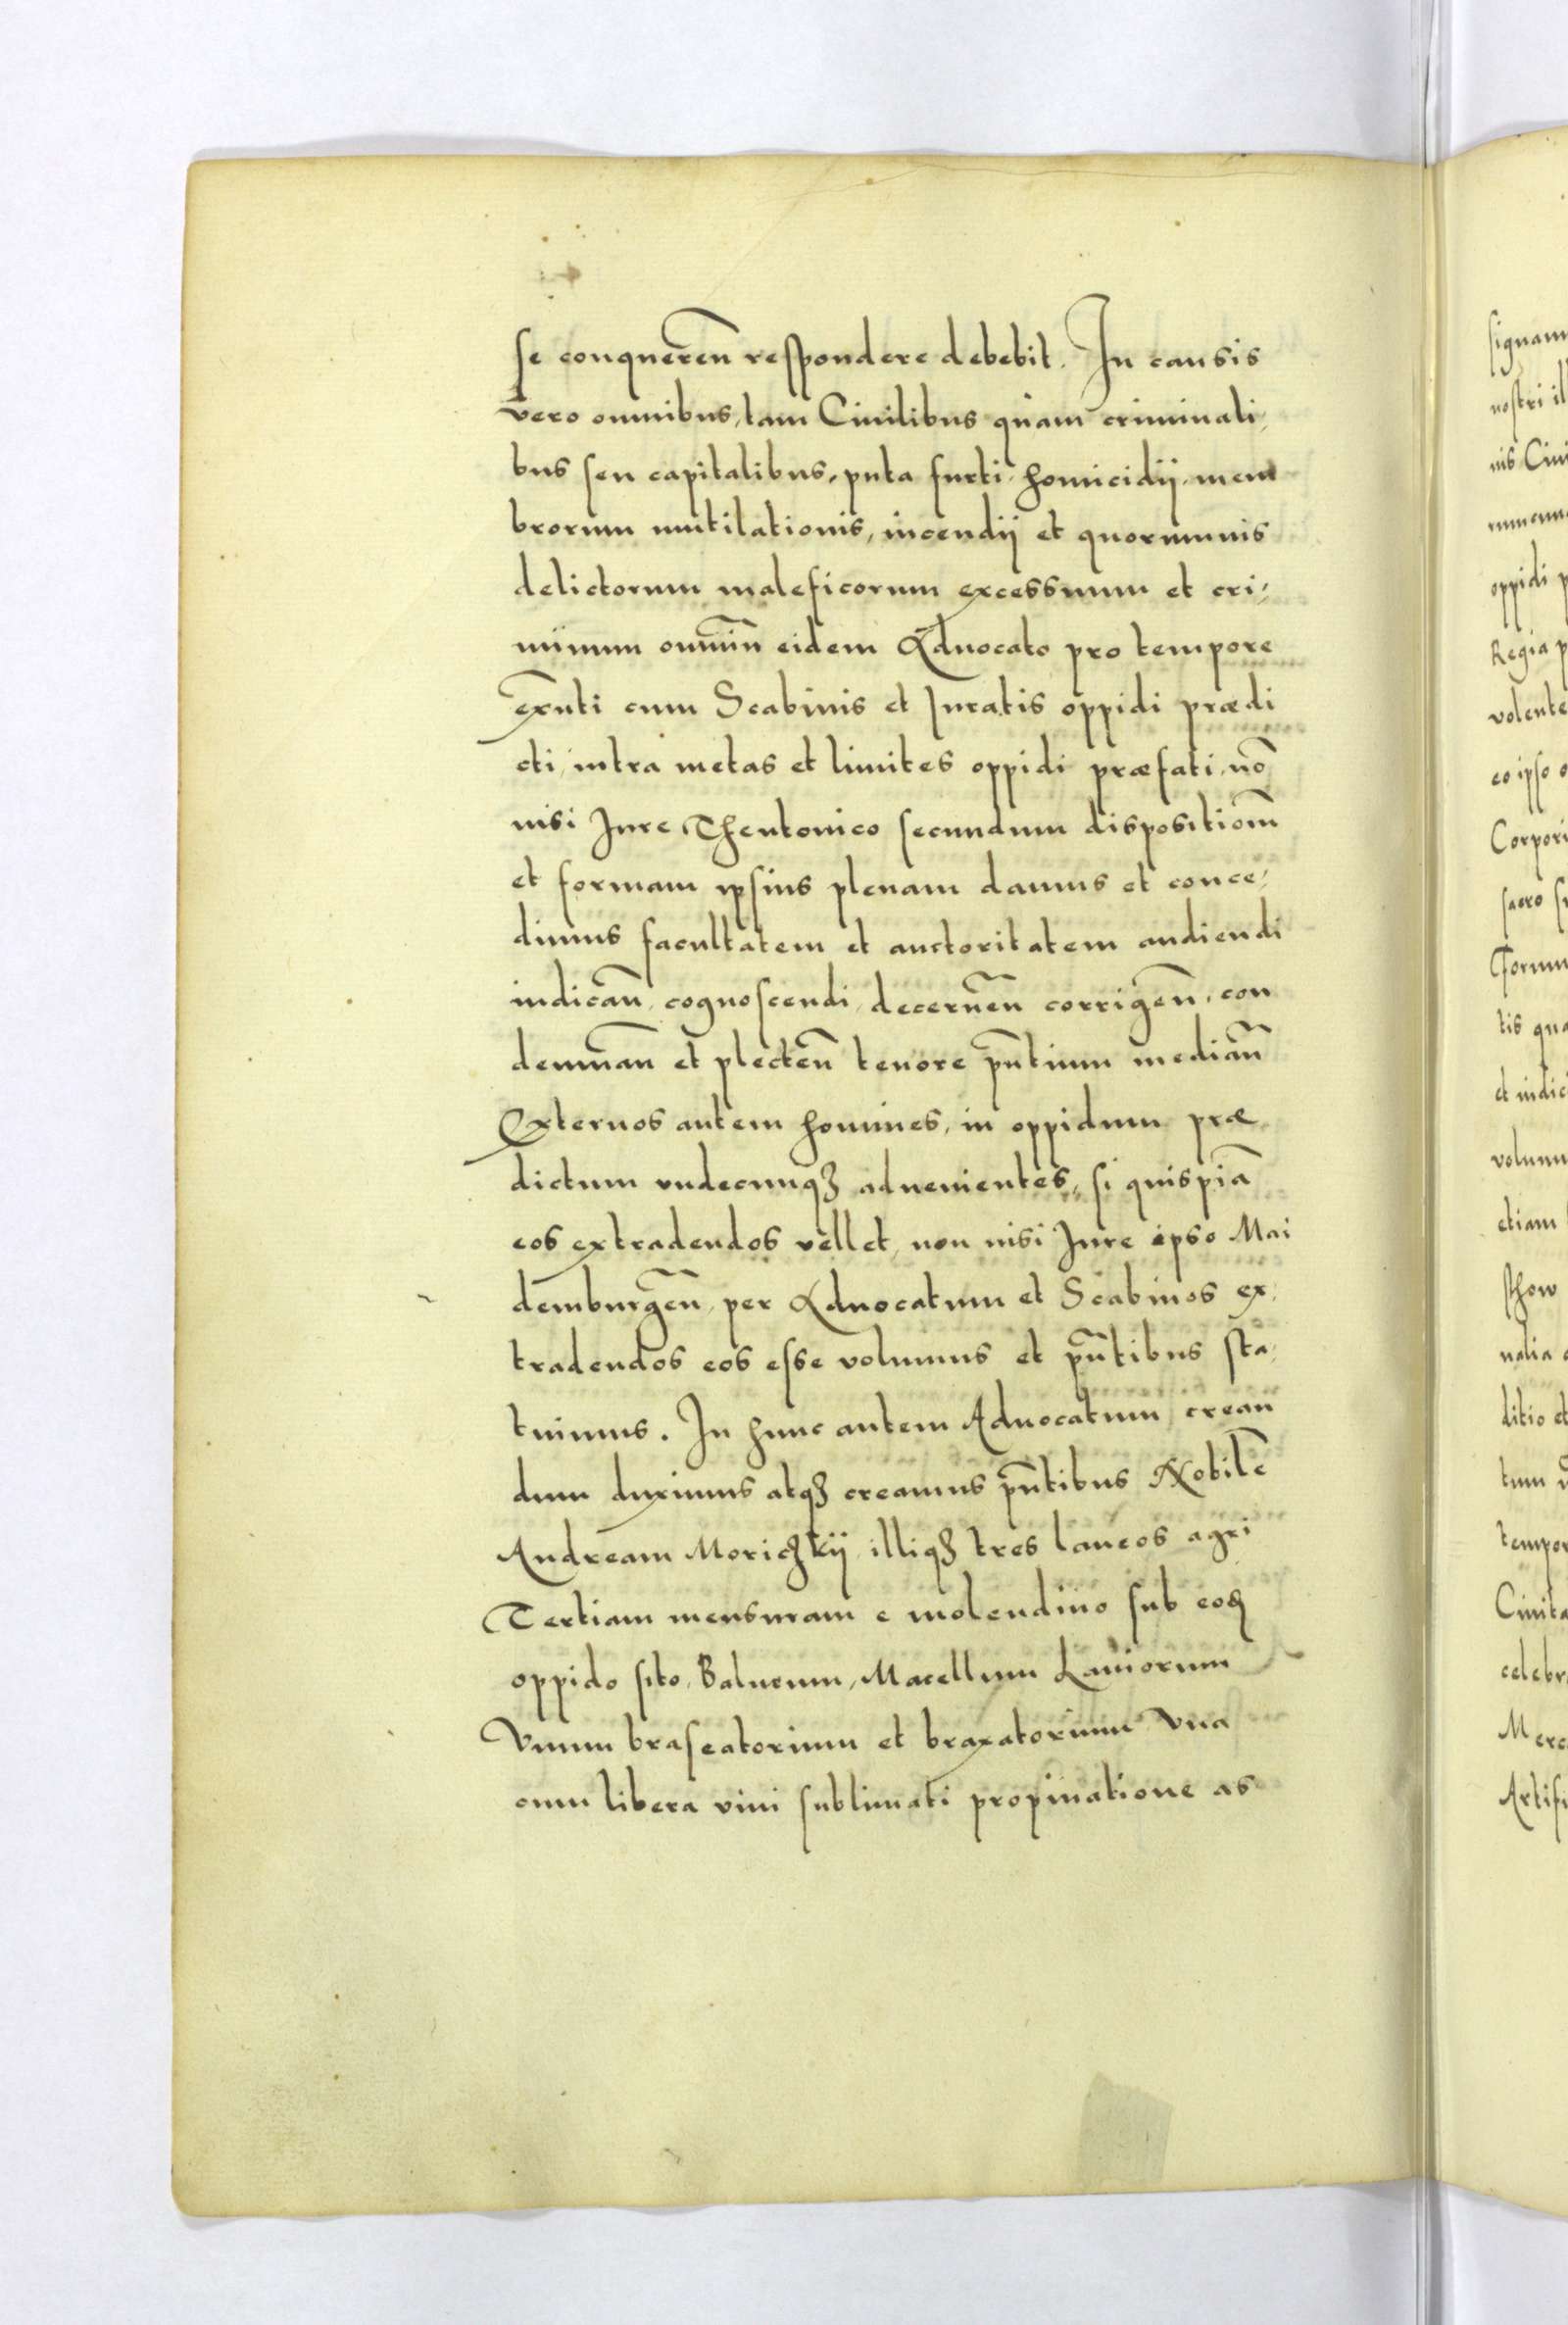 se conqueren̄ respondere debebit. In causis
vero omnibus, tam Ciuilibus quam criminali,
bus seu capitalibus, puta furti, homicidij, mem
brorum mutilationis, incendij et quorumuis
delictorum maleficorum excessuum et cri,
minum omniū eidem Aduocato pro tempore
exn̄ti cum Scabinis et Juratis oppidi prædi
cti, intra metas et limites oppidi præfati, nō
nisi Jure Theutonico secundum dispositiom̄
et formam ipsius plenam damus et conce,
dimus facultatem et auctoritatem audiendi
iudican̄, cognoscendi, decernen̄ corrigen̄, con
demnan̄ et plecten̄ tenore pn̄tium median̄
Externos autem homines, in oppidum præ
dictum vndecunqꝫ aduenientes, si quispiā
eos extradendos vellet, non nisi Jure ipso Mai
demburgen̄, per Aduocatum et Scabinos ex,
tradendos eos esse volumus et pn̄tibus sta,
tuimus. In hunc autem Aduocatum crean
dum duximus atqꝫ creamus pn̄tibus Nobilē
Andream Moriczkij, illiqꝫ tres laneos agri
Tertiam mensuram e molendino sub eoḋ
oppido sito, Balneum, Macellum Laniorum
Vnum braseatorium et braxatorium Vna
cum libera vini sublimati propinatione as
signam
nostri il
nis Ciui
oppidi p
Regia p
volente
eo ipso o
Corpori
sacro
tis qua
et iudic
volumu
etiam
nalia
ditio et
tum
tempor
Ciuita
celebr
Merc
Artifi